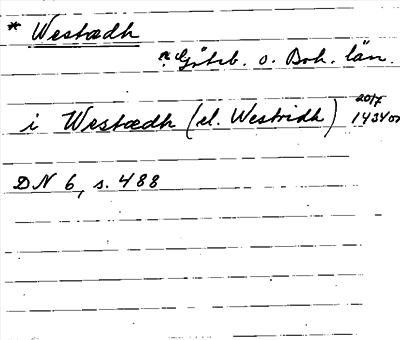 * Westædh
? Göteb. o. Boh. län.
i Westædh (el. Westridh) 20/7 1434 or
DN 6, s. 488